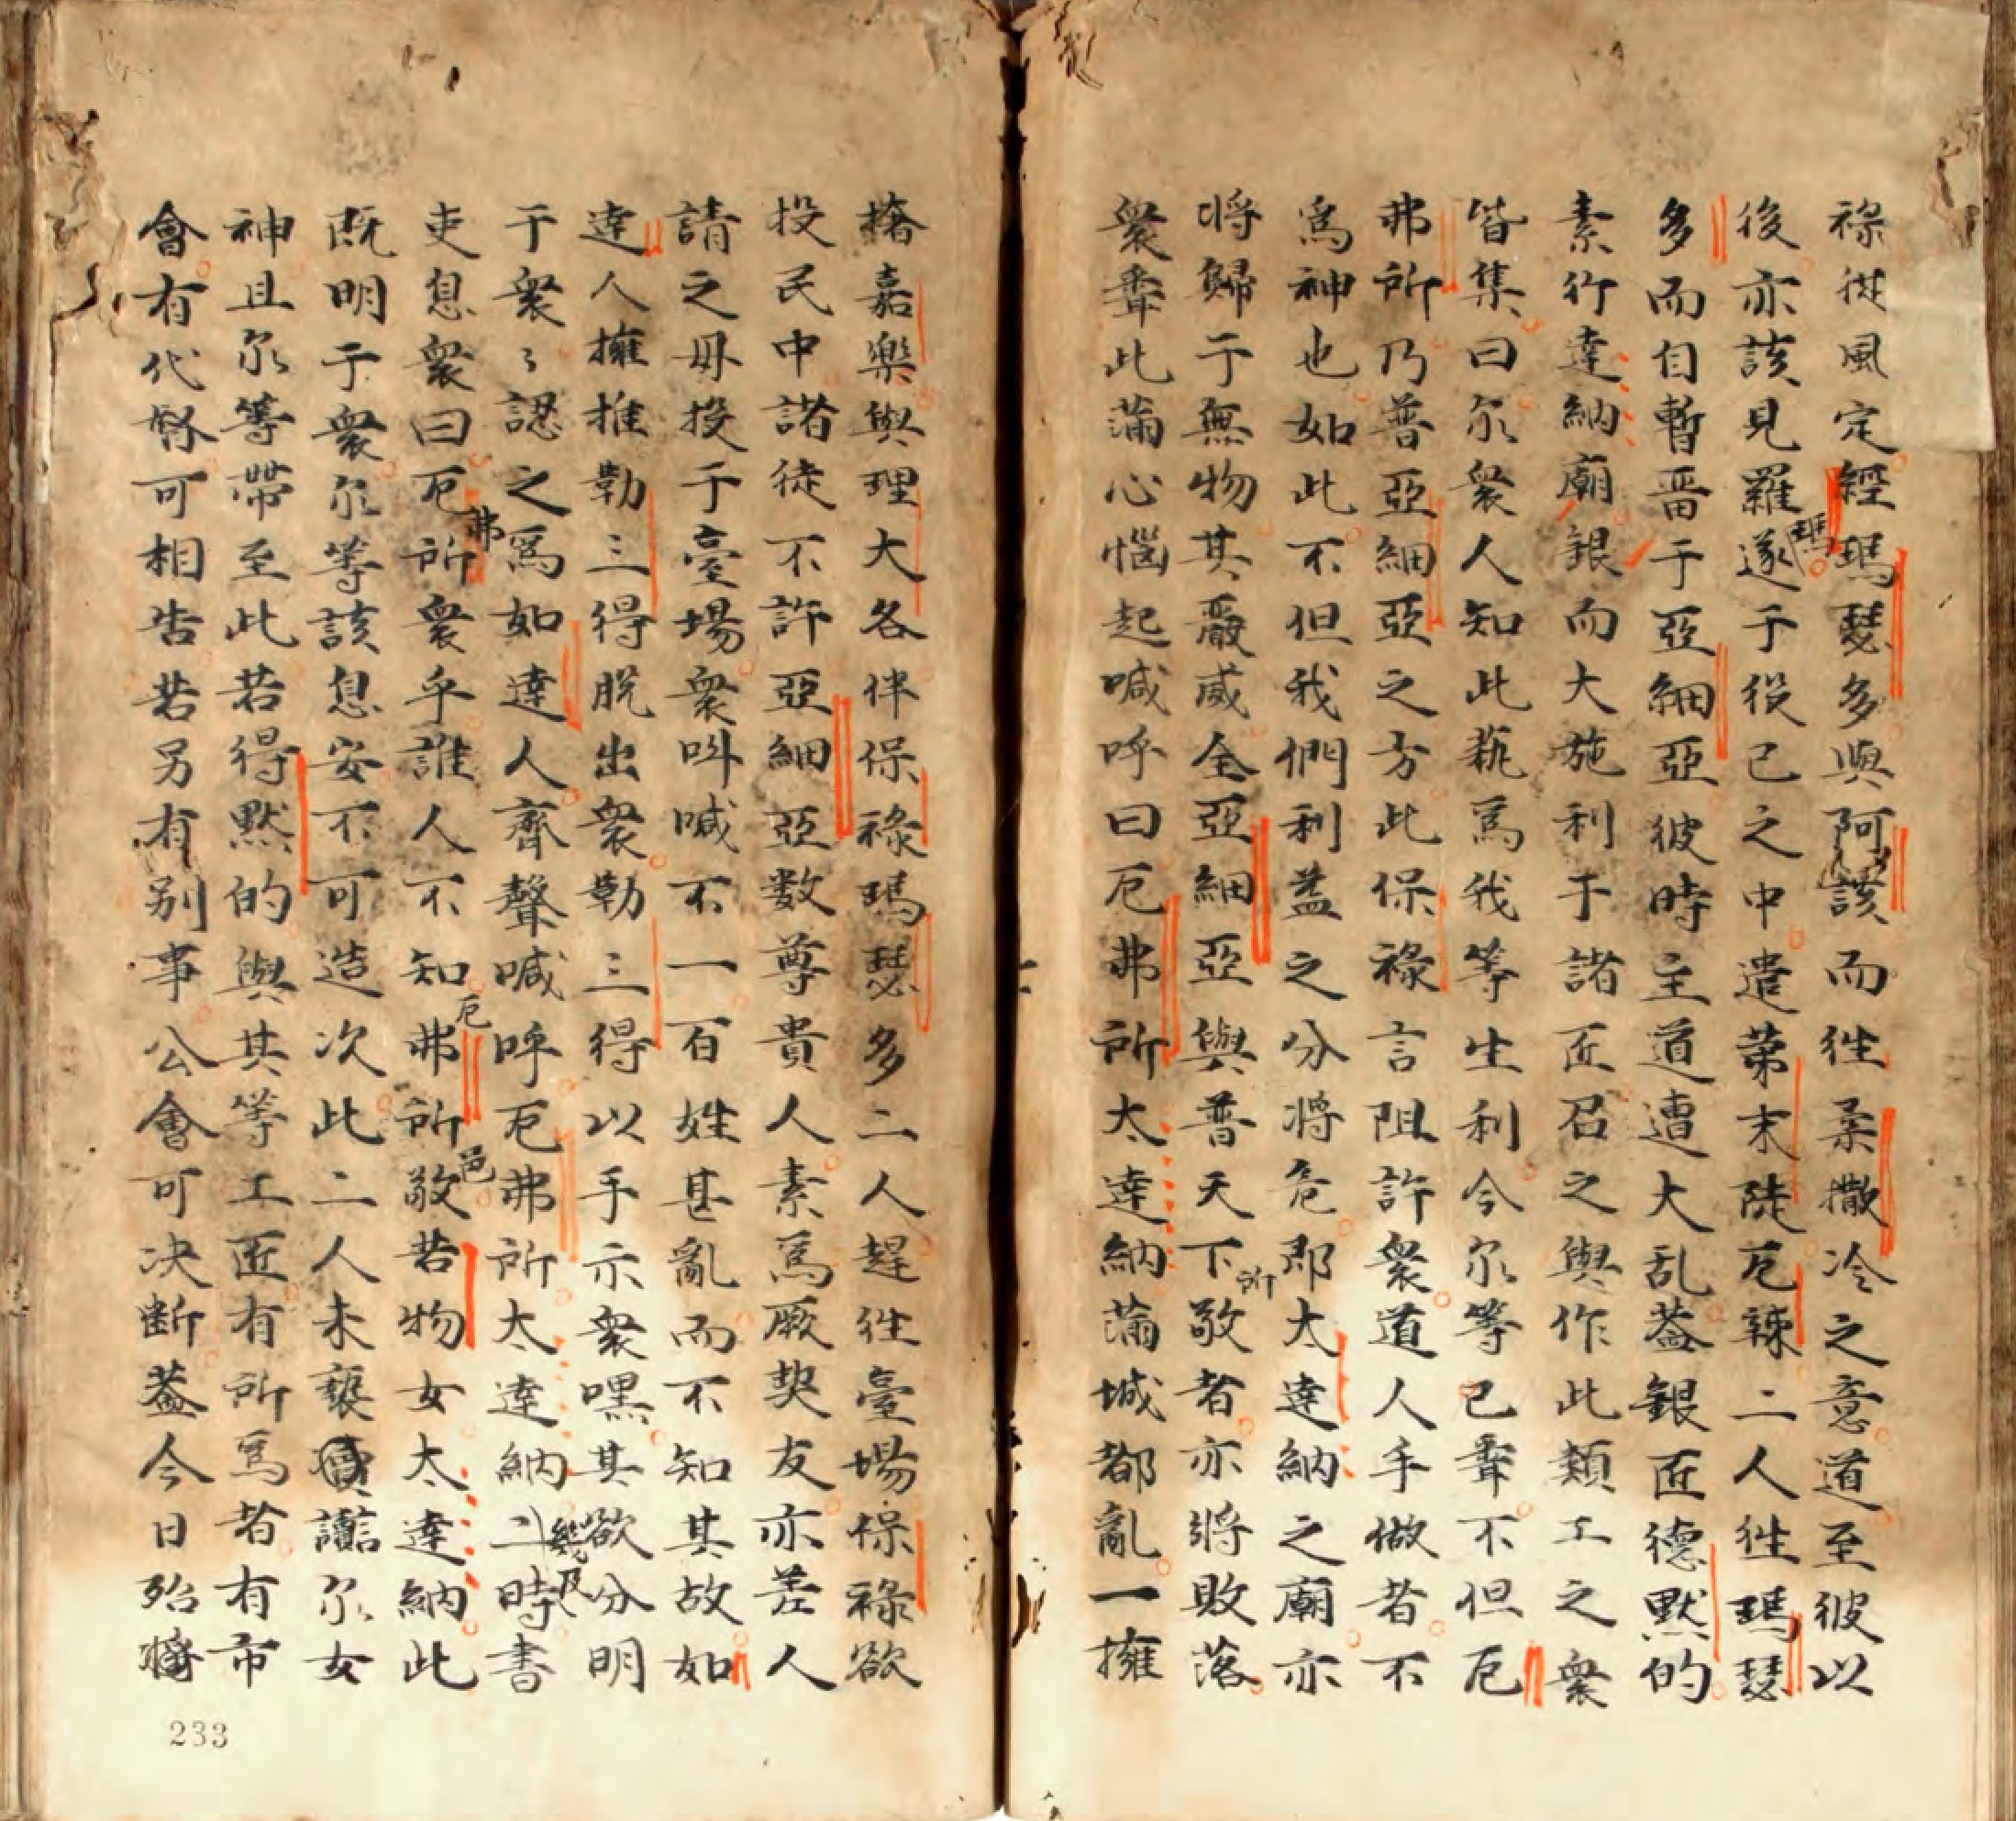 祿從風定經瑪瑟多與阿該而徃柔撒冷之意道至彼以
後亦該見羅瑪遂于役已之中遣苐末陡厄辣二人徃瑪瑟
多而自暫畱于亞細亞彼時主道遭大乱葢銀匠德默的
素行達納廟銀而大施利于諸匠召之與作此類工之衆
皆集曰尔衆人知此藝爲我等生利今尔等已聞不但厄
弗所乃普亞細亞之方此保祿言阻許衆道人手做者不
爲神也如此不但我們利益之分將危即大達納之廟亦
將歸于無物其嚴威全亞細亞與普天下所敬者亦將敗落
衆聞此滿心惱起喊呼曰厄弗所大達納滿城都亂一擁
撦嘉樂與理大各伴保祿瑪瑟多二人趕徃臺場保祿欲
投民中諸徒不許亞細亞数尊貴人素爲厥契友亦差人
請之毋投于臺場衆呌喊不一百姓甚亂而不知其故如
達人擁推勒三得脱出衆勒三得以手示衆嘿其欲分明
于衆〻認之爲如達人齊聲喊呼厄弗所大達納幾及二時書
吏息衆曰厄弗所衆乎誰人不知厄弗所邑敬若物女大達納此
既明于衆尔等該息安不可造次此二人未褻瀆讟尔女
神且尔等帶至此若得默的與其等工匠有所爲者有市
會有代督可相告若另有别事公會可决断葢今日殆將
233